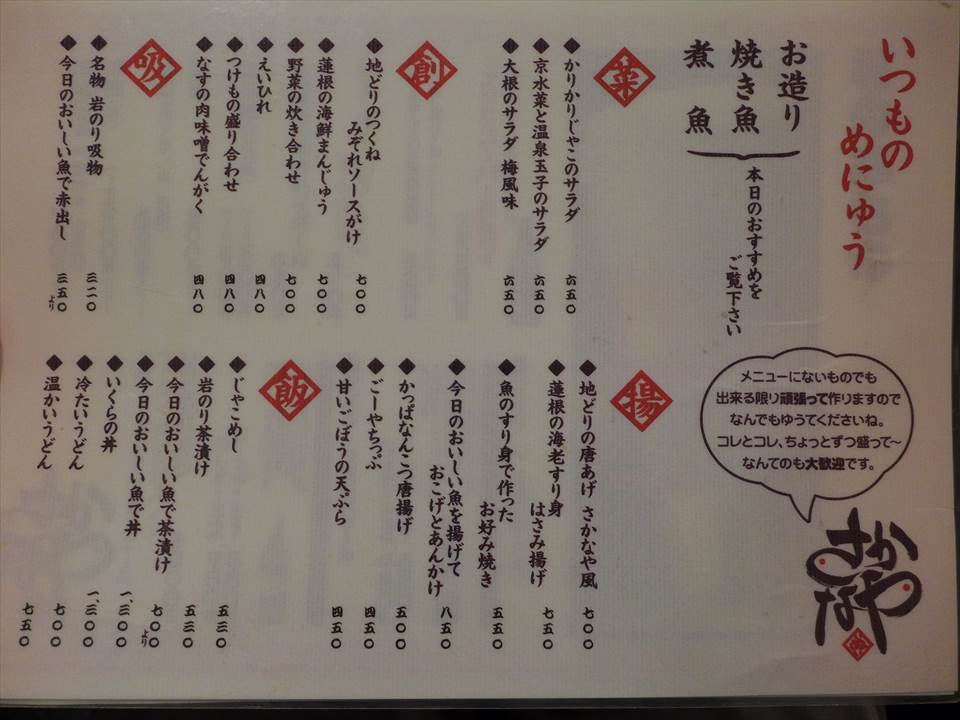 いつもの
めにゅう
お造り
焼き魚
煮魚
本日のおすすめを
ご覧下さい
菜
◆かりかりじゃこのサラダ 六五〇
◆京水菜と温泉玉子のサラダ 六五〇
◆大根のサラダ 梅風味 六五〇
創
◆地どりのつくね
みぞれソースがけ 七〇〇
◆蓮根の海鮮まんじゅう 七〇〇
◆野菜の炊き合わせ 七〇〇
◆えいひれ 四八〇
◆つけもの盛り合わせ 四八〇
◆なすの肉味噌でんがく 四八〇
吸
◆名物 岩のり吸物 三二〇
◆今日のおいしい魚で赤出し 三五〇より
メニューにないものでも
出来る限り頑張って作りますので
なんでもゆうてくださいね。
コレとコレ、ちょっとずつ盛って〜
なんてのも大歓迎です。
さかなや
揚
◆地どりの唐あげ さかなや風 七〇〇
◆蓮根の海老すり身
はさみ揚げ 七五〇
◆魚のすり身で作った
お好み焼き 五五〇
◆今日のおいしい魚を揚げて
おこげとあんかけ 八五〇
◆かっぱなんこつ唐揚げ 五〇〇
◆ごーやちっぷ 四五〇
◆甘いごぼうの天ぷら 四五〇
飯
◆じゃこめし 五三〇
◆岩のり茶漬け 五三〇
◆今日のおいしい魚で茶漬け 七〇〇より
◆今日のおいしい魚で丼 一、三〇〇
◆いくらの丼 一、三〇〇
◆冷たいうどん 七〇〇
◆温かいうどん 七五〇